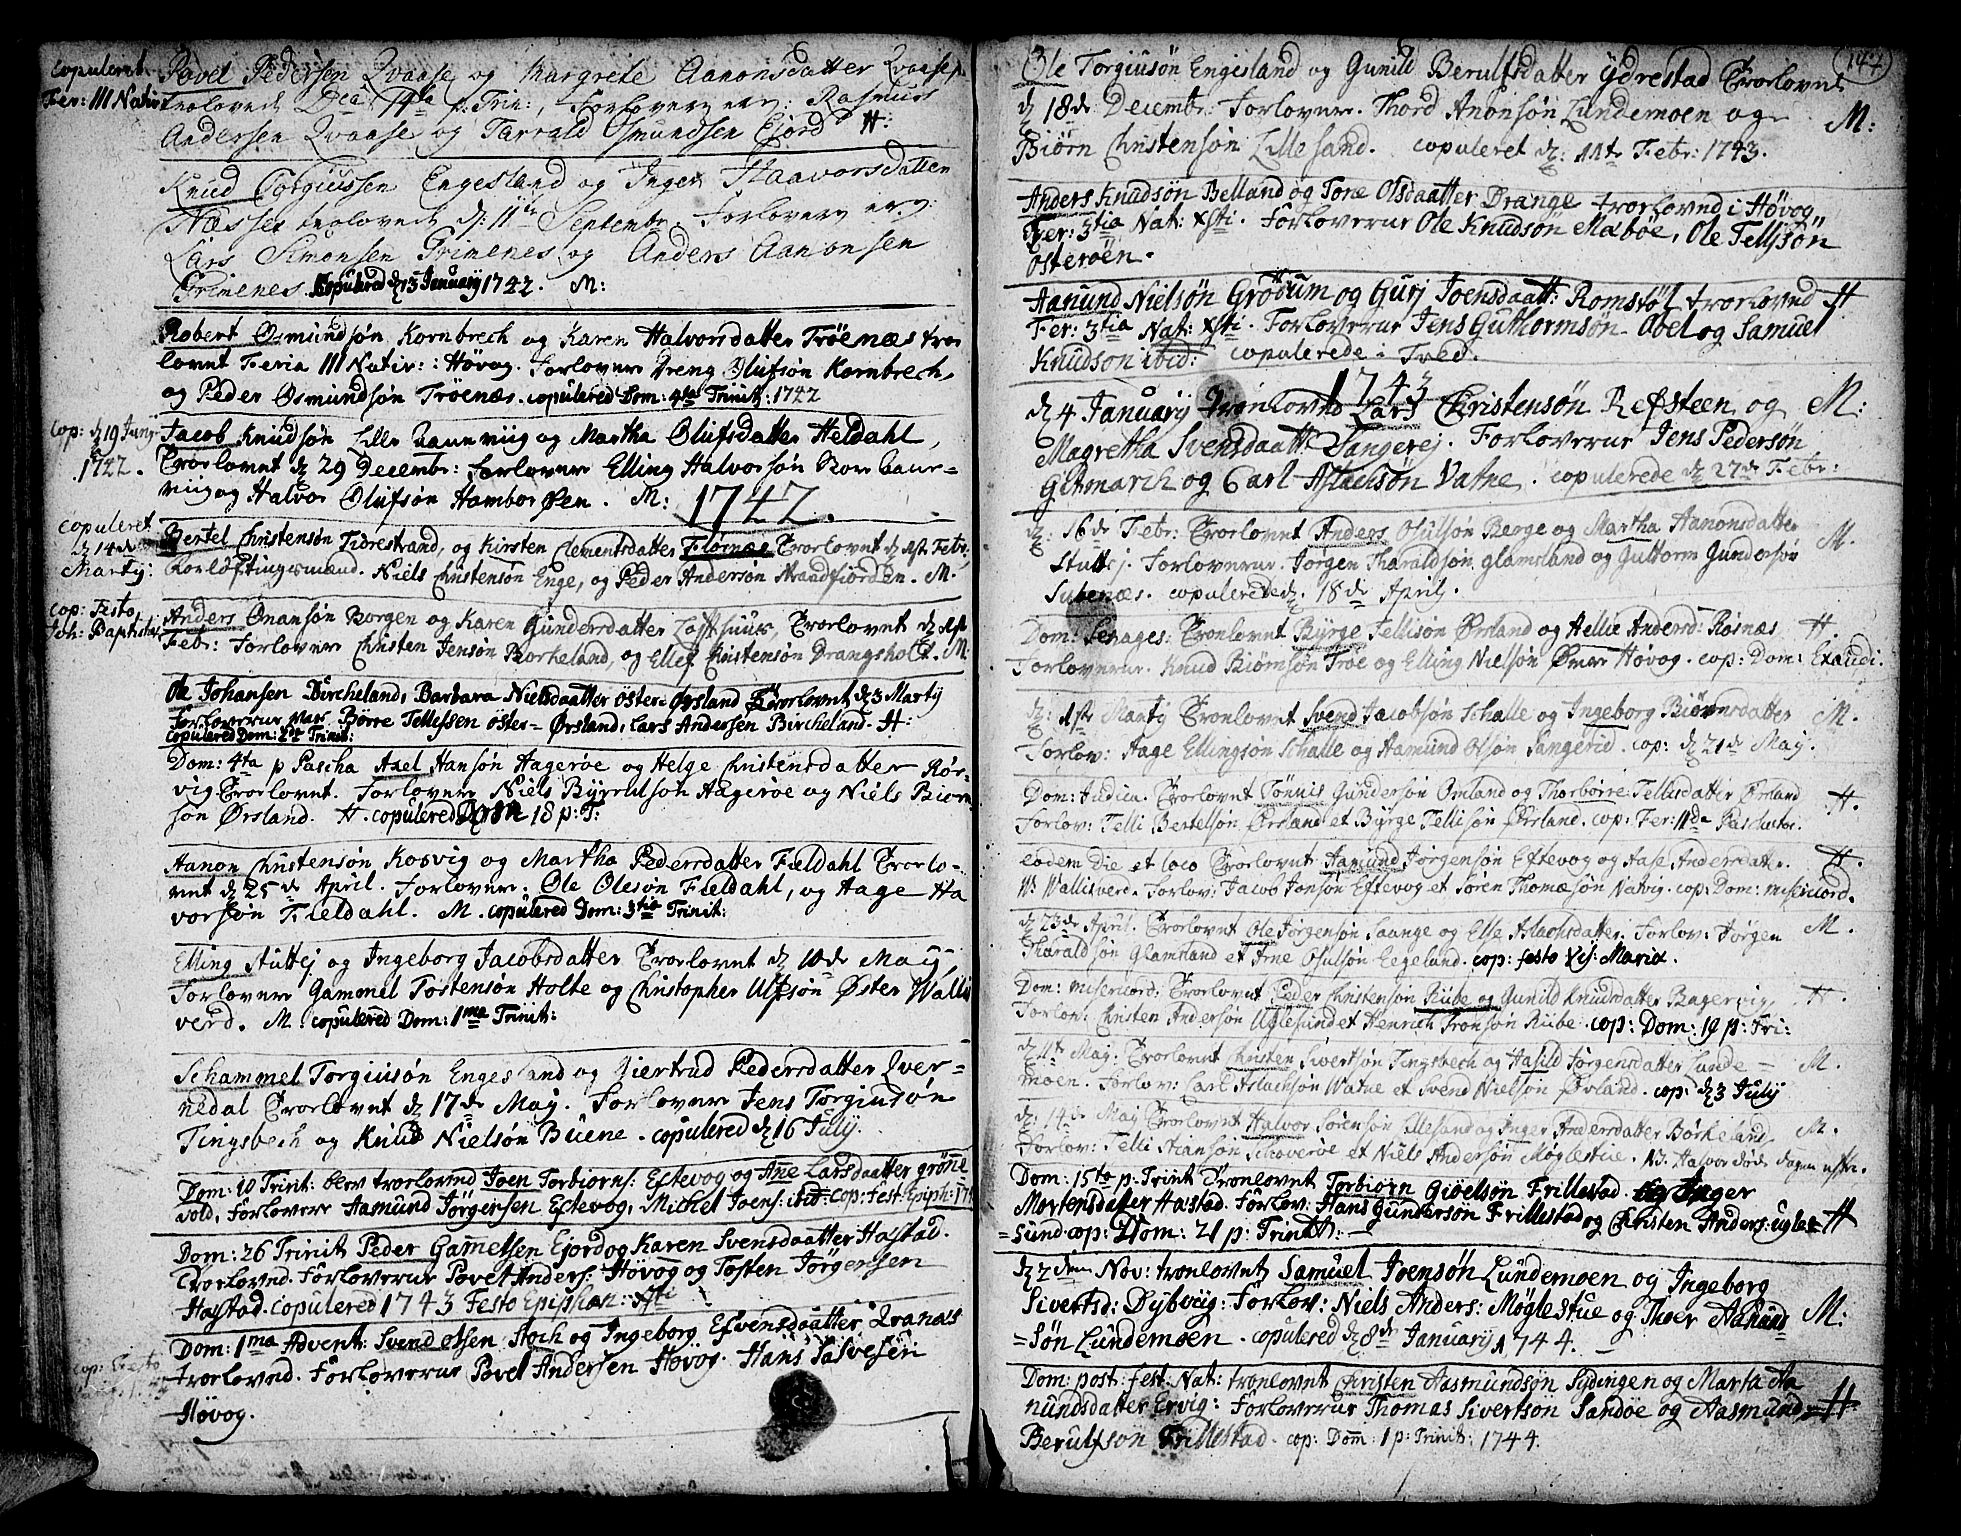 copuleret
Fer: III Nativ:
Povel Pedersen Qvaase og Margrete Aanonsdatter Qvaase
trolovede Dca 14ta p. Trin:, Forlovere ere: Rasmus
Andersen Qvaase og Tarrald Osmundsen Ejord H:
Knud Torgiussen Engesland og Inger Haavorsdatter
Næsset trolovede d: 11te Septembr: Forlovere ere:
Lars Simonsen Grimenes og Anders Aanonsen
Grimenes. Copulered d. 13 January 1742. M:
Robert Osmundsøn Kornbrech og Karen Halvorsdatter Trøenæs troe
lovnt Feria III Nativ: Høvog. Forlovere Dreng Olufsøn Kornbrech,
og Peder Osmundsøn Trøenæs. copulered Dom: 4ta Trinit: 1742
cop: d 19 Junij
1742.
Jacob Knudsøn Lille og Martha Olufsdatter Heldahl,
Troelovnt d 29 Decembr: forlovere Elling Halvorsøn
og Halvor Olufsøn Hamborøen. M:
1742.
copuleret
d 14de
Martij:
Bertel Christensøn Tidrestrand, og Kirsten Clementsdatter Flørnæs Troelovnt d 1ste Febr:
Forløftingsmænd. Niels Christensøn Enge, og Peder Andersøn Strandfiorden. M.
cop: Festo
Joh: Baptistæ
Anders Onansøn Borgen og Karen Gundersdatter Loftshuus, Troelovnt d 1ste
Febr: Forlovere Christen Jensøn Borkeland, og Ellef Christensøn Drangsholt. M.
Ole Johansen Bircheland, Barbara Nielsdaatter Øster-Ørsland Troelovnt d 3 Martij
Forloverne var Børre Tellefssen Øster-Ørsland, Lars Andersen Bircheland. H.
copulered Dom: 2da Trinit:
Dom: 4ta p Pascha Axel Hansøn Hagerøe og Helge Christensdatter Rør-
vig Troelovnt. Forlovere Niels Byrelsøn Hagerøe og Niels Biørn
søn Ørsland. H. copulered Dom 18 p: T:
Aanon Christensøn Kosvig og Martha Pedersdatter Fieldahl Troelo-
vnt d 25de April. Forlovere: Ole Olesøn Fieldahl, og Aage Ha
vorsøn Fieldahl. M. copulered Dom: 3tia Trinit:
Elling Stuttej og Ingeborg Jacobsdatter Troelovnt d 10de May,
Forlovere Gammel Tostensøn Holte og Christopher Ulfsøn Øster Walli
verd. M. copulered Dom: 1ma Trinit:
Schammel Torgiusøn Engesland og Giertrud Pedersdatter Qver-
nedal Troelovnt d 17de Maij. Forlovere Jens Torgiusøn
Tingsbech og Knud Nielsøn Buene. copulered d 16 Julij.
Dom: 10 Trinit: blev troelovnd Joen Torbiorns: Eftevog og Anne Larsdaatter grønne
vold, Forlovere Aamund Jörgensen Eftevog, Michel Joens: ibid: cop: fest: Epiph: 174
Dom: 26 Trinit Peder Gamelsen Ejord og Karen Svensdaatter Hastad.
Troelovnd. Forloverne Povel Anders: Høvog og Tosten Jörgensen
Hastad. copulered 1743 Festo Epiphan: Xsti
cop: Festo
Dom: 1ma Advent: Svend Olsen Stoch og Ingeborg Efvensdaatter Qvanæs
troelovnd. Forloverne Povel Andersen Høvog. Hans Salvesen
Høvog.
147
Ole Torgiusøn Engisland og Gunild Berulfsdatter Ydrestad Troelovnt
d 18de Decembr: Forlovere. Thord Anonsøn Lundemoen og
Biørn Christensøn Lillesand. copuleret d: 11te Febr: 1743. M:
Anders Knudsøn Belland og Tone Olsdaatter Drange troelovnd i Høvog
Fer: 3tia Nat: Xsti. Forloverne Ole Knudsøn Mæbøe, Ole Tellfsøn
Osterøen.
Aanund Nielsøn Grødum og Gurj Joensdaatt: Romstøl troelovnd H
Fer: 3tia Nat: Xsti. Forloverne Jens Guthormsøn Abel og Samuel
Knudsøn ibid: copulerede i Tved.
1743
d 4 Januarij Troelovnd Lars Christensøn Refsteen og M:
Magretha Svensdaatt: Sangerej. Forloverne Jens Pedersøn
Gitmarch og Carl Aslachsøn Vatne. copulerede d 27de Febr:
d: 16de Febr: Troelovnt Anders Osulsøn Berge og Martha Aanonsdatter M.
Stuttej. Forloverne. Jørgen Tharaldsøn Glamsland og Guttorm Gundersøn
Sutenæs. copulerede d. 18de April.
Dom: Sexages: Troelovnt Byrge Tellisøn Ørsland og Hellie Anders: Rosnæs H.
Forloverne. Knud Biørnsøn Troe og Elling Nielsøn Øvre Høvog. cop: Dom: Exaudi.
d: 1ste Marty Troelovnt Svend Jacobsøn Schalle og Ingeborg Biørnsdatter M.
Forlov: Aage Ellingsøn Schalle og Aamund Olsøn Sangerid. cop: d 21de May.
Dom: Judica. Troelovnt Tønnis Gundersøn Omland og Thorborre Tellisdatter Ørsland H.
Forlov: Telli Bertelsøn Ørsland et Byrge Tellisøn Ørsland. cop: Fer: IIda Paschatos.
eodem die et loco Troelovnt Aamund Jørgensøn Eftevog og Aase Andersdatt: H.
W: Walliverd. Forlov: Jacob Jonsøn Eftevog et Søren Thomæsøn Natvig. cop: Dom: misericord.
d 23de April. Troelovnt Ole Jørgensøn Saange og Else Aslacksdatter. Forlov: Jørgen M.
Tharaldsøn Glamsland et Arne Osulsøn Eegeland. cop: festo Vis: Mariæ.
Dom: misericord: Troelovnt Peder Christensøn Riibe og Gunild Knudsdatter Bagervig, H.
Forlov: Christen Andersøn Uglesund et Henrich Tronsøn Riibe. cop: Dom: 19 p: Tri:
d 11te May: Troelovnt Christen Sivertsøn Tingsbech og Hasild Jørgensdatter Lunde- M.
moen. Forlov: Carl Aslachsøn Watne et Svend Nielsøn Øvland. cop: d 3 July
d: 14de May Troelovnt Halvor Sørensøn Lillesand og Inger Andersdatter Børkeland, M.
Forlov: Telli Stiansøn Schoverøe et Niels Andersøn Møglestue. NB. Halvor døde dagen eftr.
Dom: 15to p: Trinit Troelovnt Torbiorn Giöelsön Frillestad. og Inger
Mortensdatter Hastad. Forlov: Hans Gundersön Frillestad og Christen Anders: ugle- H
-sund cop: Dom: 21 p: Trinit: -
d 2den Nov: troelovnt Samuel Joensøn Lundemoen og Ingeborg
Sivertsd: Dybvig: Forlov: Niels Anders: Møglestue og Thoer Aanund M:
-søn Lundemoen. copulered d 8de Januarij 1744. -
Dom: post: fest: Nat: troelovnt Christen Aasmundsøn Sydingen og Marta Aa
nundsdatter Ervig: Forloverne Thomas Sivertsøn Sandøe og Aasmund H
Berulfsøn Frillestad. cop: Dom: 1 p: Trinit: 1744.